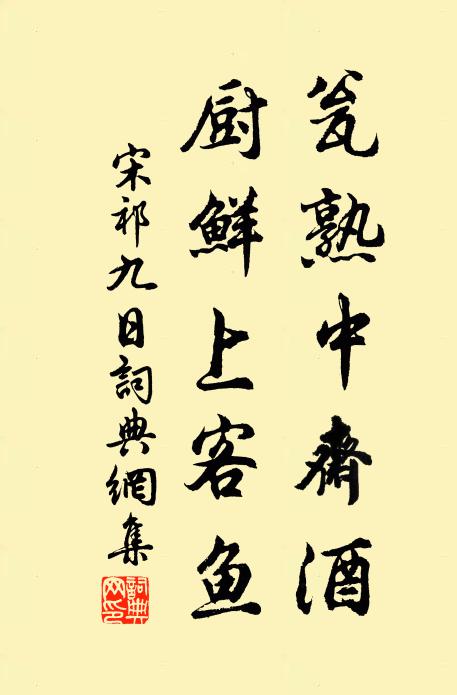 瓮熟中齋酒
厨鮮上客鱼
宋祁九日詞典網集